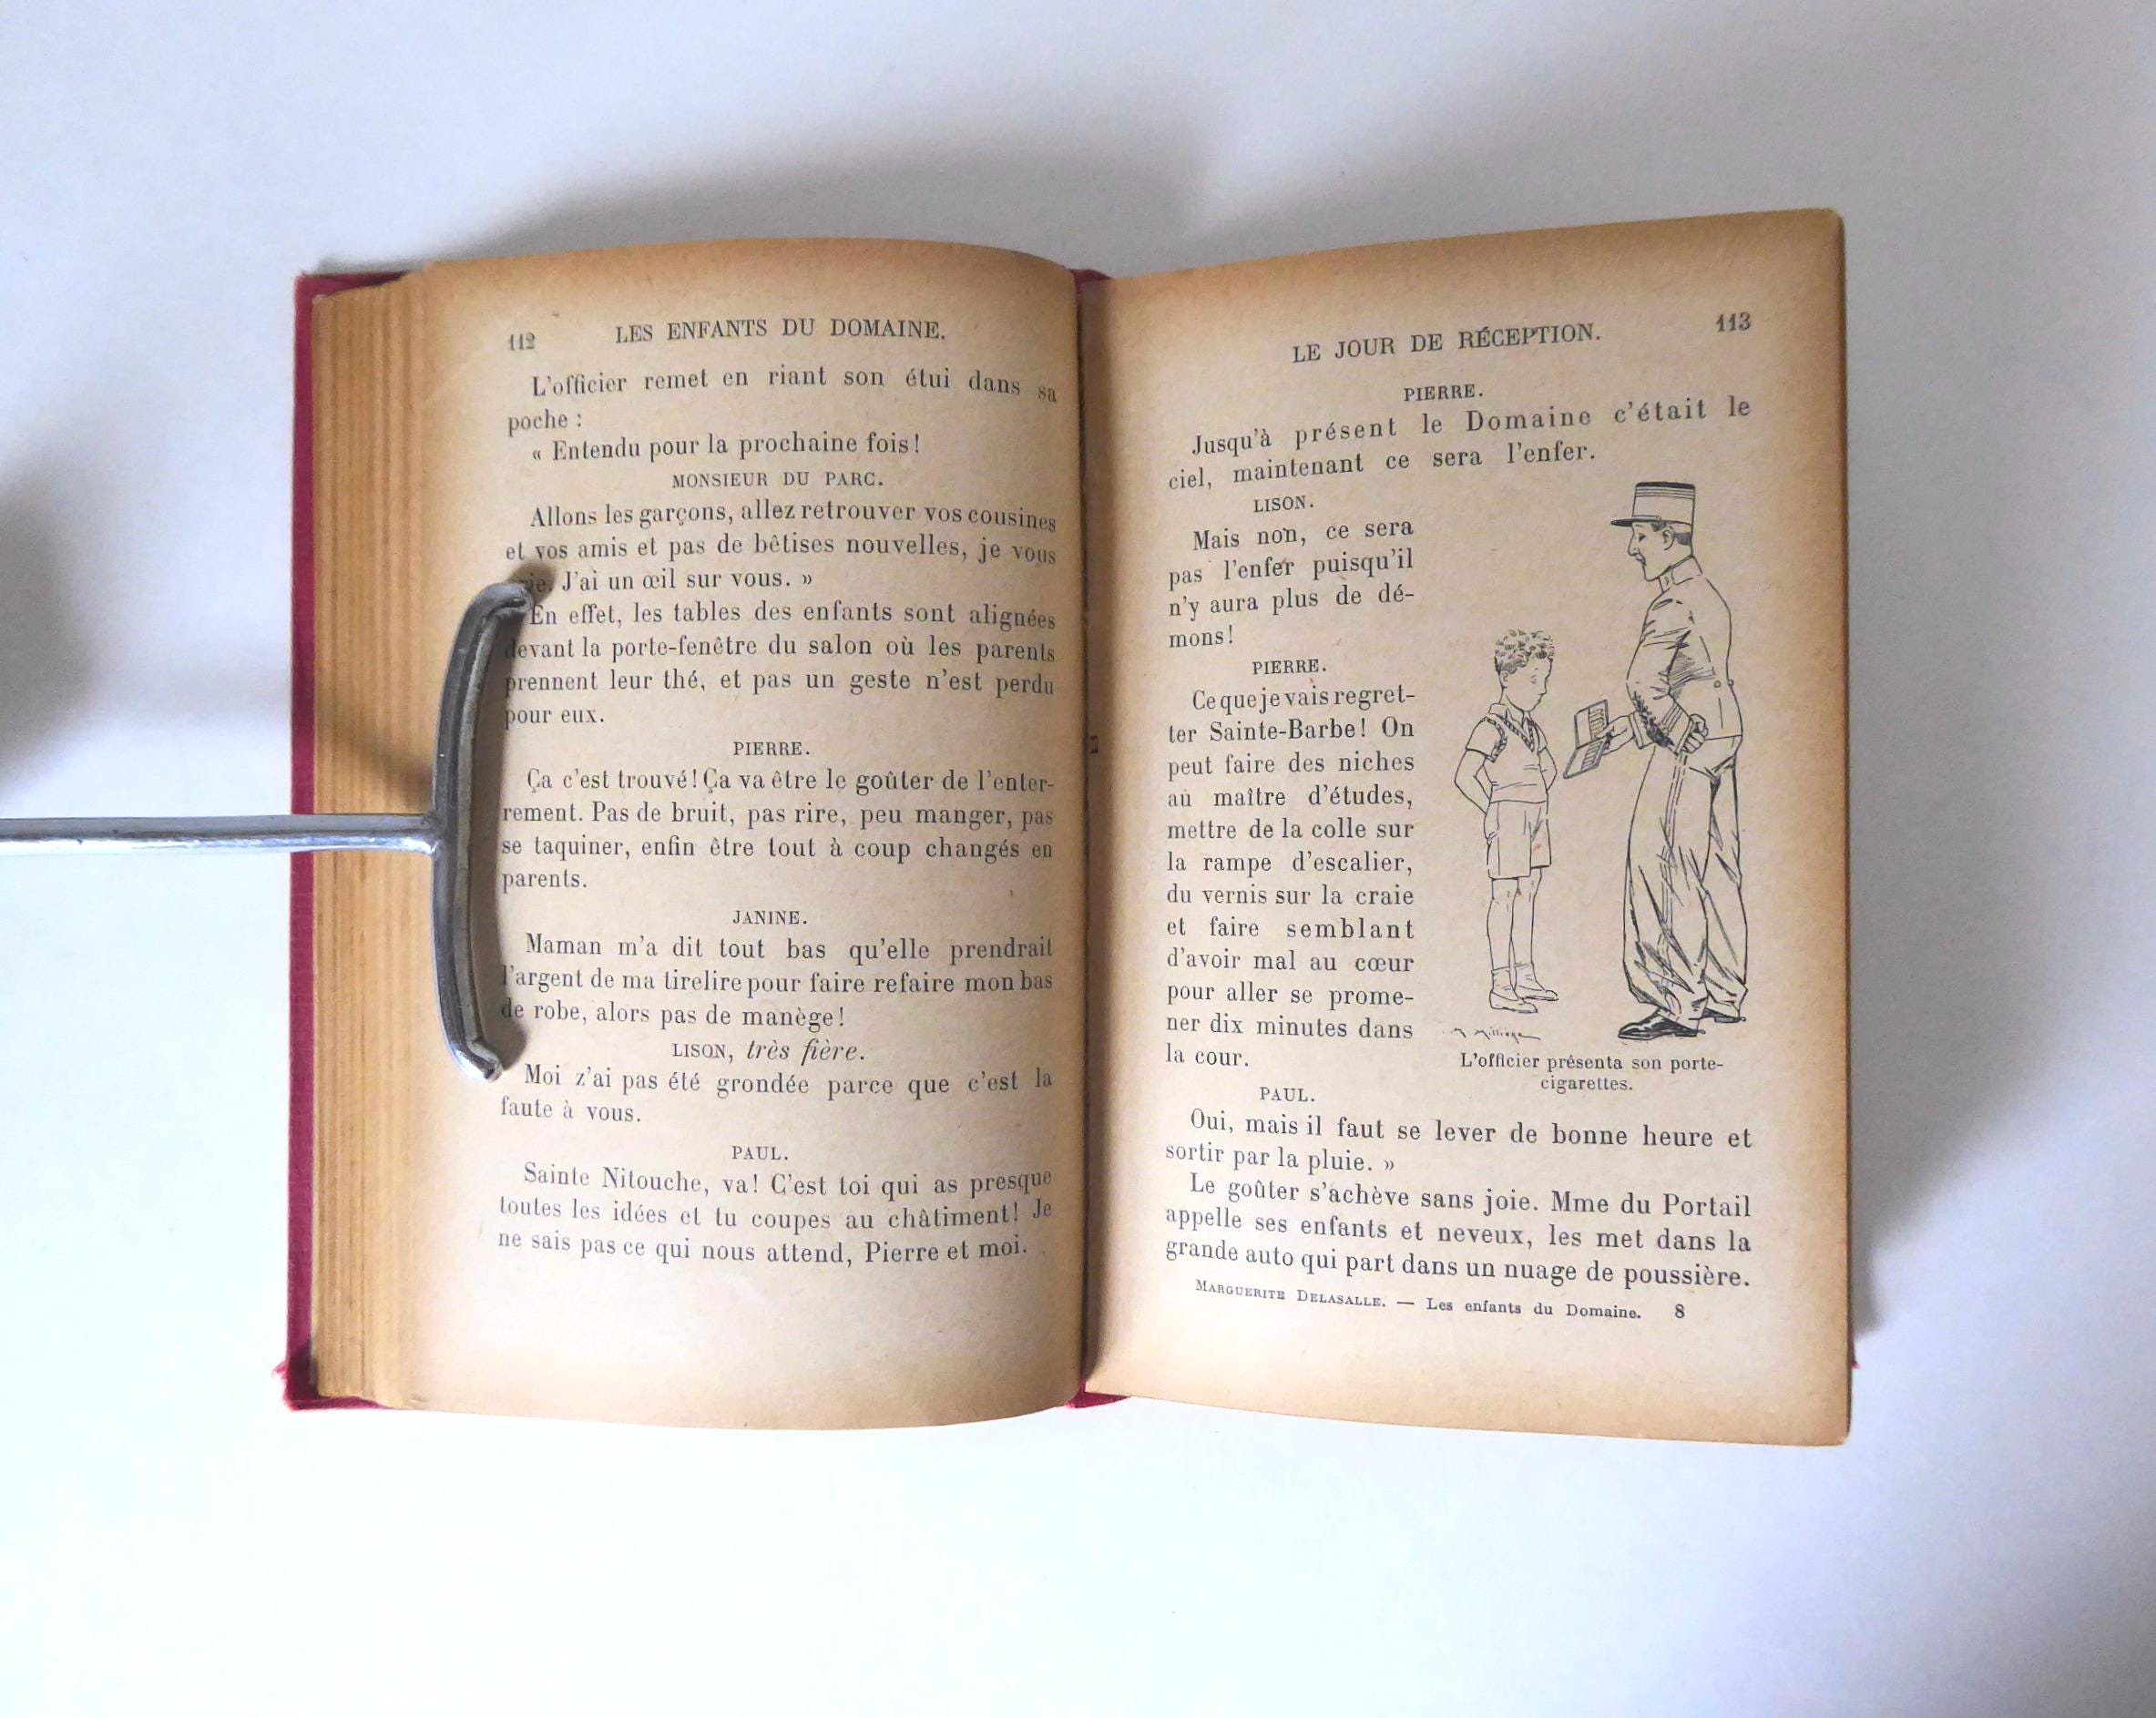 112
LES ENFANTS DU DOMAINE.
L'officier remet en riant son étui dans sa
poche :
« Entendu pour la prochaine fois!
MONSIEUR DU PARC.
Allons les garçons, allez retrouver vos cousines
et vos amis et pas de bêtises nouvelles, je vous
J'ai un œil sur vous. »
En effet, les tables des enfants sont alignées
devant la porte-fenêtre du salon où les parents
prennent leur thé, et pas un geste n'est perdu
pour eux.
PIERRE.
Ça c'est trouvé! Ça va être le goûter de l'enter-
rement. Pas de bruit, pas rire, peu manger, pas
se taquiner, enfin être tout à coup changés en
parents.
JANINE.
Maman m'a dit tout bas qu'elle prendrait
l'argent de ma tirelire pour faire refaire mon bas
de robe, alors pas de manège!
LISON, très fière.
Moi z'ai pas été grondée parce que c'est la
faute à vous.
PAUL.
Sainte Nitouche, va! C'est toi qui as presque
toutes les idées et tu coupes au châtiment! Je
ne sais pas ce qui nous attend, Pierre et moi.
LE JOUR DE RÉCEPTION.
113
PIERRE.
Jusqu'à présent le Domaine c'était le
ciel, maintenant ce sera l'enfer.
LISON.
Mais non, ce sera
pas l'enfer puisqu'il
n'y aura plus de dé-
mons!
PIERRE.
Ce que je vais regret-
ter Sainte-Barbe! On
peut faire des niches
au maître d'études,
mettre de la colle sur
la rampe d'escalier,
du vernis sur la craie
et faire semblant
d'avoir mal au cœur
pour aller se prome-
ner dix minutes dans
la cour.
L'officier présenta son porte-
cigarettes.
PAUL.
Oui, mais il faut se lever de bonne heure et
sortir par la pluie. »
Le goûter s'achève sans joie. Mme du Portail
appelle ses enfants et neveux, les met dans la
grande auto qui part dans un nuage de poussière.
MARGUERITE DELASALLE. — Les enfants du Domaine. 8